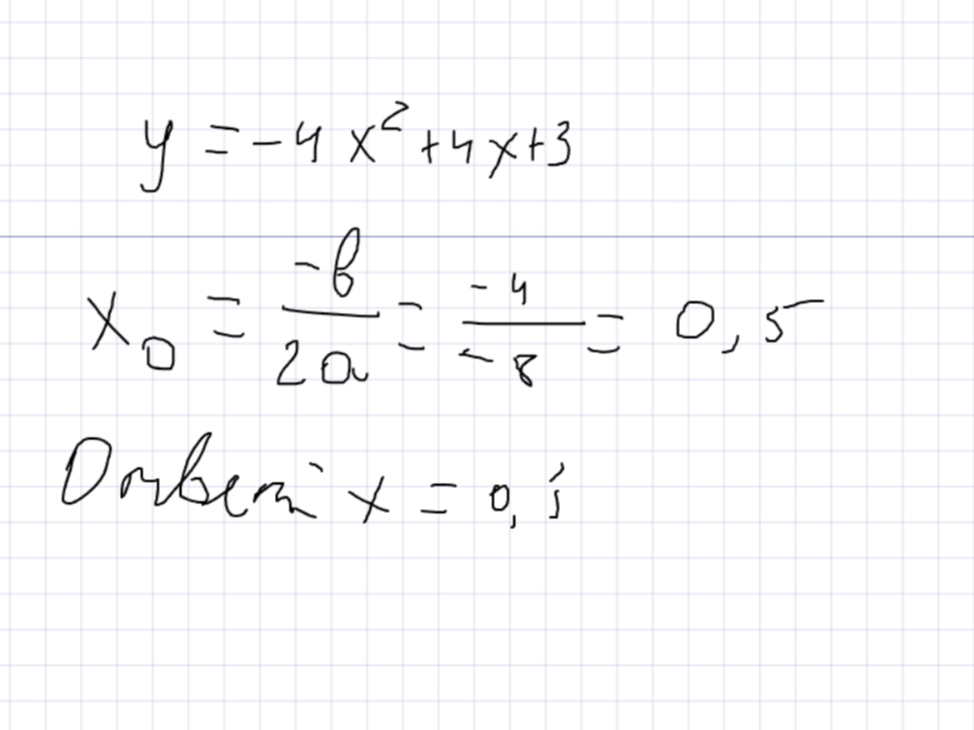 y = -4x² + 4x + 3
x₀ = -b/2a = -4/-8 = 0,5
Ответ: x = 0,5